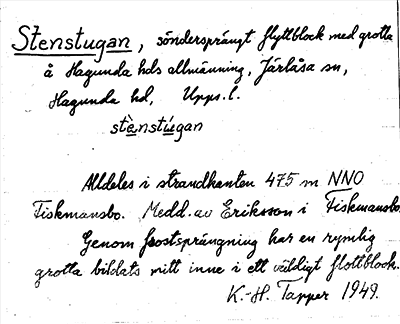 Stenstugan, söndersprängt flyttblock med grotta
å Hagunda hds allmänning, Järlåsa sn,
Hagunda hd, Upps. l.
stènstúgan
Alldeles i strandkanten 475 m NNO
Fiskmansbo. Medd. av Eriksson i Fiskmansbo.
Genom frostsprängning har en rymlig
grotta bildats mitt inne i ett väldigt flottblock.
K.-H. Tapper 1949.